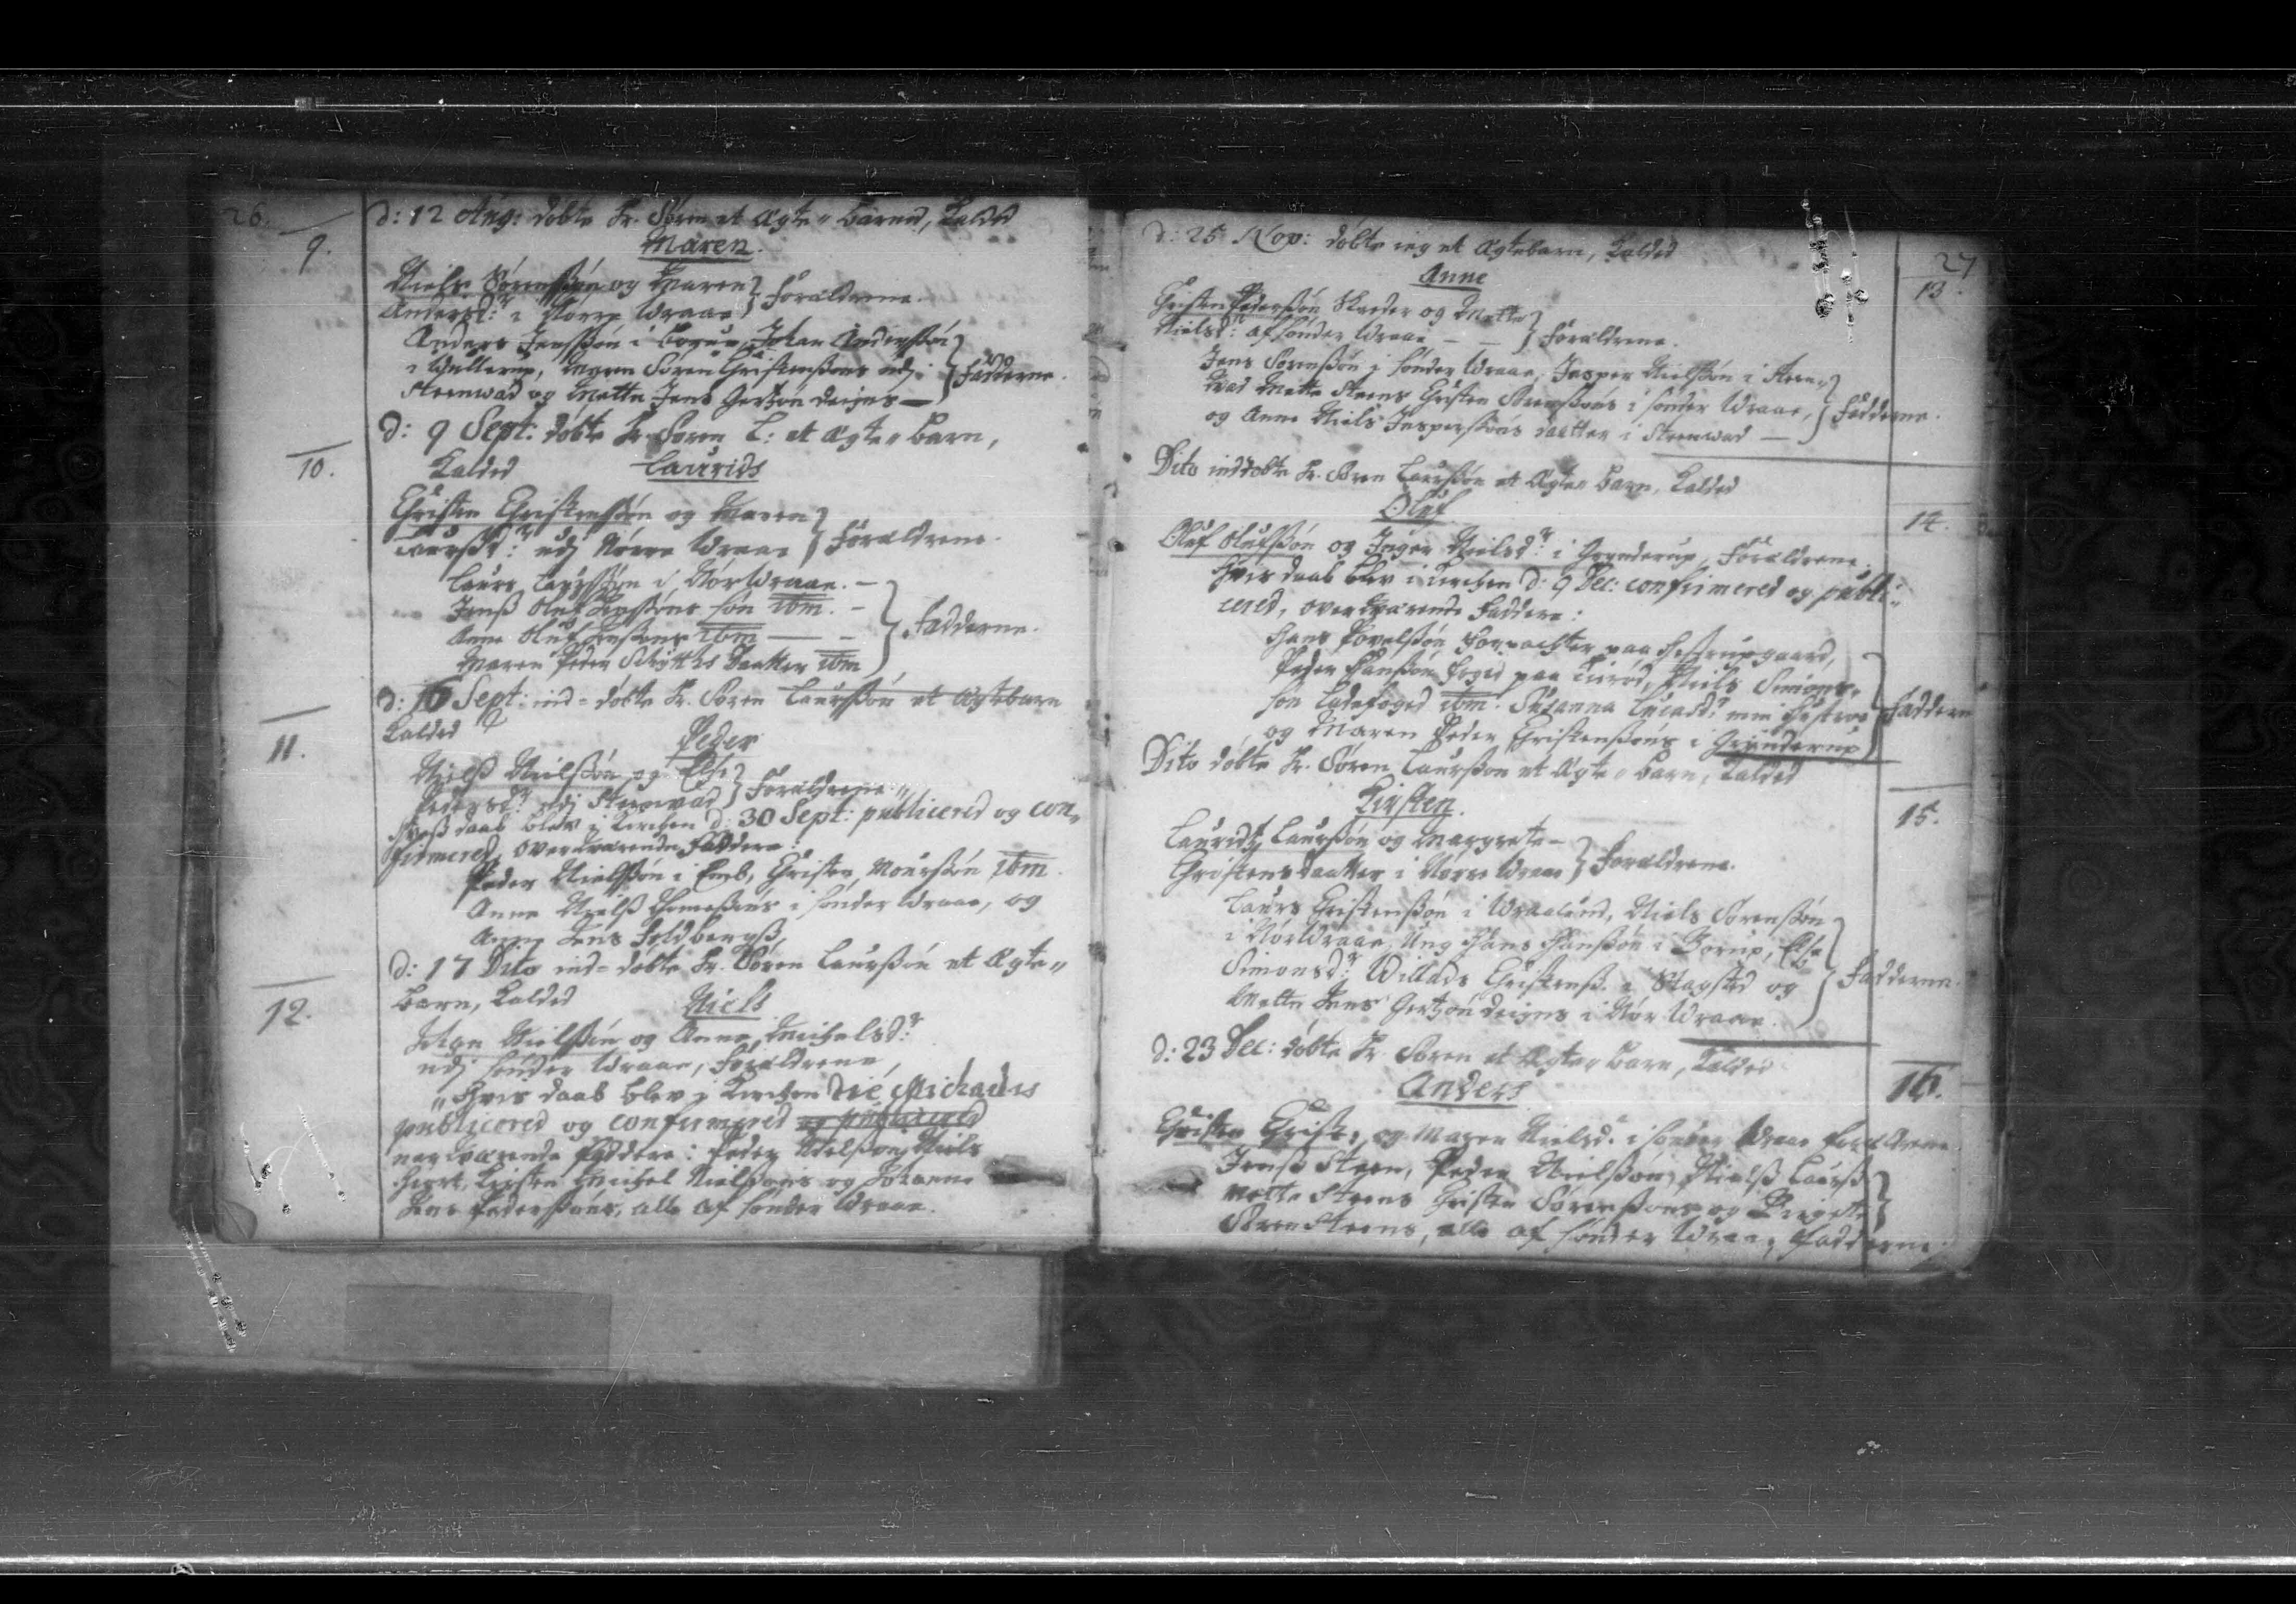 26.
9.
d: 12 Aug: døbte Hr. Søren et Ægte- barn, kaldd
Maren.
Niels Sørenssøn og Maren
Andersd: i Nørre Wraae } Forældrene.
Anders Jenssøn i Borup, Johan Anderssøn
i Wellerup, Maren Søren Christenssøns udj
Steenwad og Mette Jens Gertsøn deigns — } Fadderne.
10.
d: 9 Sept: døbte Hr. Søren L: et Ægte- barn,
kaldd Laurids
Christen Christenssøn og Maren
Laursd: udj Nørre Wraae } Forældrene.
Laurs Laurssøn i Nørwraae. —
Jenss Oluf Jenssøns søn ibm. —
Anne Oluf Jenssøns ibm — —
Maren Peder Schyttes Daatter ibm } Fadderne.
11.
d: 16 Sept: ind- døbte Hr. Søren Laurssøn et Ægtebarn
kaldd
Peder
Nielss Nielssøn og Else
Pedersd: udj Steenwad } Forældrene
hvess daab blev i kirchen d: 30 Sept: publicered og con-
firmered, overværende Faddere:
Peder Nielssøn i Emb, Christen Mourssøn ibm.
Anne Nielss Thomessøns i sønder Wraae, og
Anne Jens Foldbergss
12.
d: 17 Dito ind- døbte Hr. Søren Laurssøn et Ægte-
barn, kaldd Niels
Johan Nielssøn og Anne Michelsd:
udj sønder Wraae, Forældrene,
hvis daab blev i kirchen Die Michaelis
publicered og confirmered og publicered
nerværende Faddere: Peder Nielssøn, Niels
Hiort, Kirsten Michel Nielssøns og Johanne
Jens Pederssøns, alle af sønder Wraae.
27
13.
d: 25 Nov: døbte ieg et Ægtebarn, kaldd
Anne
Christen Pederssøn Skreder og Mette
Nielsd: af sønder Wraae — — } Forældrene.
Jens Sørenssøn i sønder Wraae, Jesper Nielssøn i Steen-
wad Mette Steens Christen Sørenssøns i sønder Wraae,
og Anne Niels Jesperssøns daatter i Steenwad — } Fadderne.
14.
Dito inddøbte Hr. Søren Laurssøn et Ægte- barn, kaldd
Oluf
Oluf Olufssøn og Inger Nielsd: i Grynderup, Forældrene.
hvis daab blev i kirchen d: 9 Dec: confirmered og publi-
cered, overværende Faddere:
Hans Povelssøn Forpachter paa Hestrupgaard,
Peder Hanssøn Foged paa , Niels Simons-
søn Ladefoged ibm. Susanna Lucasd: min Hustroe
og Maren Peder Christenssøns i Grynderup } Faddere
15.
Dito døbte Hr. Søren Laurssøn et Ægte- barn, kaldd
Kirsten.
Laurids Laurssøn og Margrete —
Christens daatter i Nørre Wraae } Forældrene.
Laurs Christenssøn i Wraalund, Niels Sørenssøn
i Nørwraae, Ung Hans Hanssøn i Borup, Else
Simonsd: Willads Christenss. i Stagsted og
Mette Jens Gertsøn deigns i Nør Wraae. } Fadderne.
16.
d: 23 Dec: døbte Hr. Søren et Ægte- barn, kaldd
Anders
Christen Christ: og Maren Nielsd: i sønder Wraae Forældrene.
Jenss Steen, Peder Nielssøn, Nielss Laurss.
Mette Steens Christen Sørenssøns og Birgete
Søren Steens, alle af sønder Wraae, Fadderne.